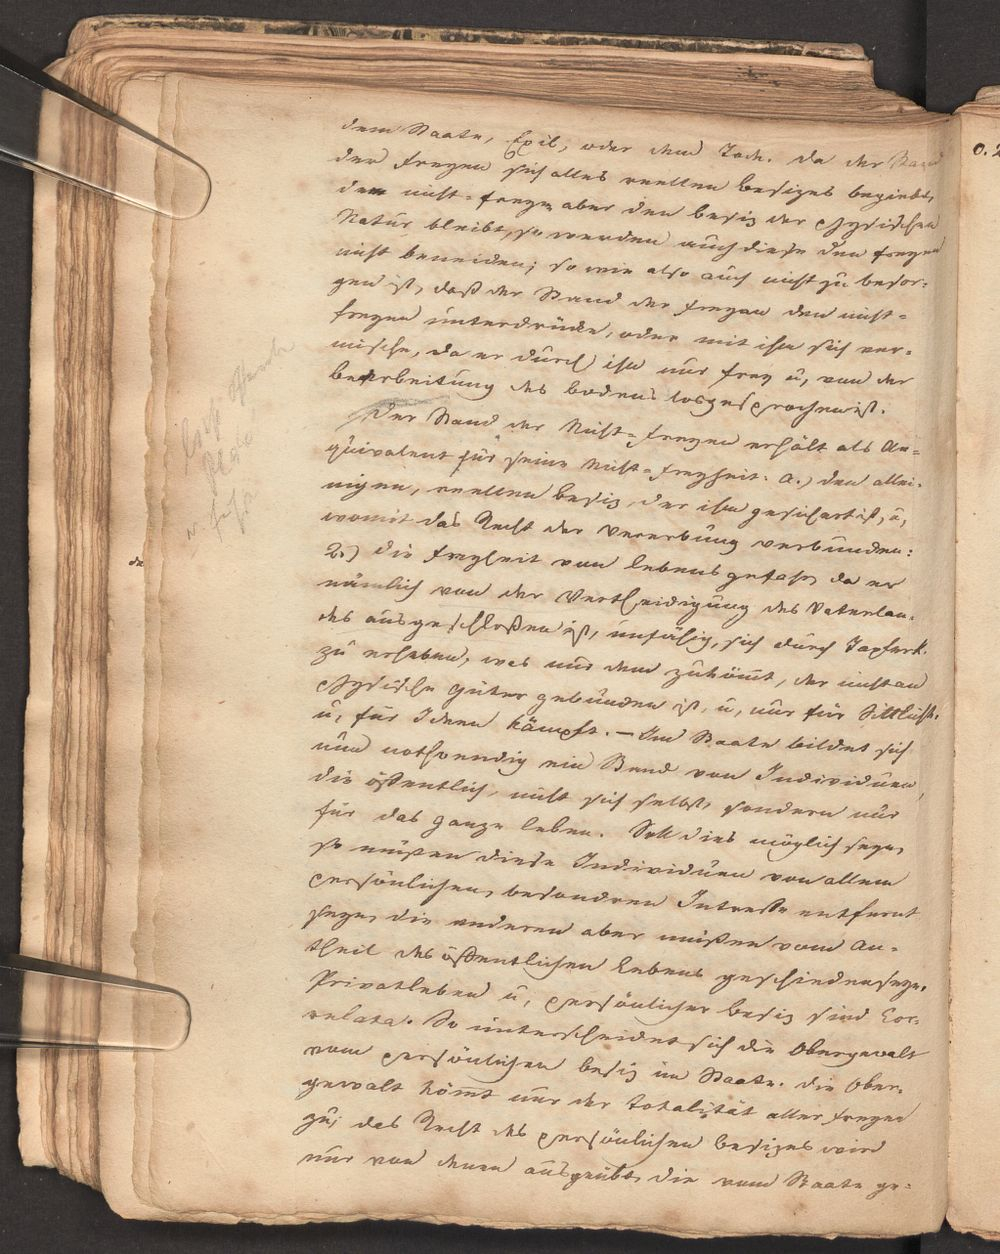 dem Staate, Exil, oder dem Tod. Da der Stand
der freyen sich alles reellen besizes begiebt,
dem nicht-freyen aber den besiz der physischen
Natur bleibt, so werden auch diese den freyen
nicht beneiden; so wie also auch nicht zu besor-
gen ist, daß der Stand der freyen den nicht-
freyen unterdrücke, oder mit ihm sich ver-
mische, da er durch ihn nur frey u, von der
bearbeitung des bodens losgesprochen ist.
Der Stand der Nicht-freyen erhält als Äe-
quivalent für seine Nicht-freyheit. a.) den allei-
nigen, reellen besiz, der ihm gesichert ist, u,
womit das Recht der Vererbung verbunden:
2.) die freyheit von lebensgefahr, da er
nämlich von der Vertheidigung des Vaterlan-
des ausgeschloßen ist, unfähig, sich durch Tapferk.
zu erheben, was nur dem zukömt, der nicht an
physische Güter gebunden ist, u, nur für Sittlichk.
u, für Ideen kämpft. – Im Staate bildet sich
nun nothwendig ein Stand von Individuen,
die öffentlich, nicht sich selbst, sondern nur
für das ganze leben. Soll dies möglich seyn,
so müßen diese Individuen von allem
persönlichen, besondren Intreße entfernt
seyn, die anderen aber müßen vom An-
theil des öffentlichen Lebens geschieden seyn.
Privatleben u, persönlicher besiz sind Cor-
relata. So unterscheidet sich die Obergewalt
vom persönlichen besiz im Staate. Die Ober-
gewalt kömt nur der Totalität aller freyen
zu; das Recht des persönlichen besizes wird
nur von denen ausgeübt, die vom Staate ge-